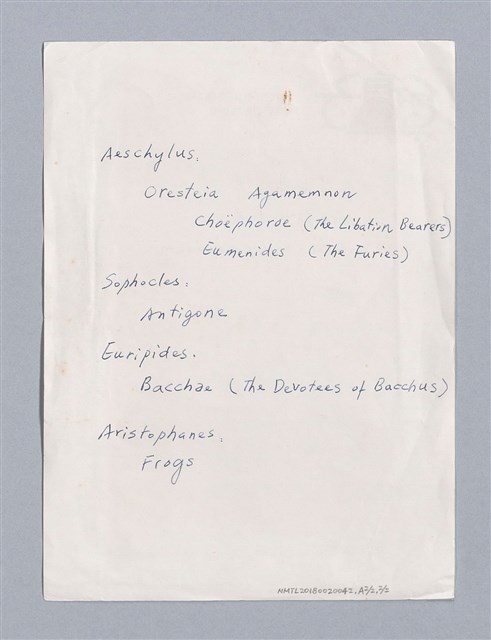 Aeschylus:
Oresteia Agamemnon
Choëphoroe (The Libation Bearers)
Eumenides (The Furies)
Sophocles:
Antigone
Euripides.
Bacchae (The Devotees of Bacchus)
Aristophanes,
Frogs
NMTL20180020042, A2/2, 2/2